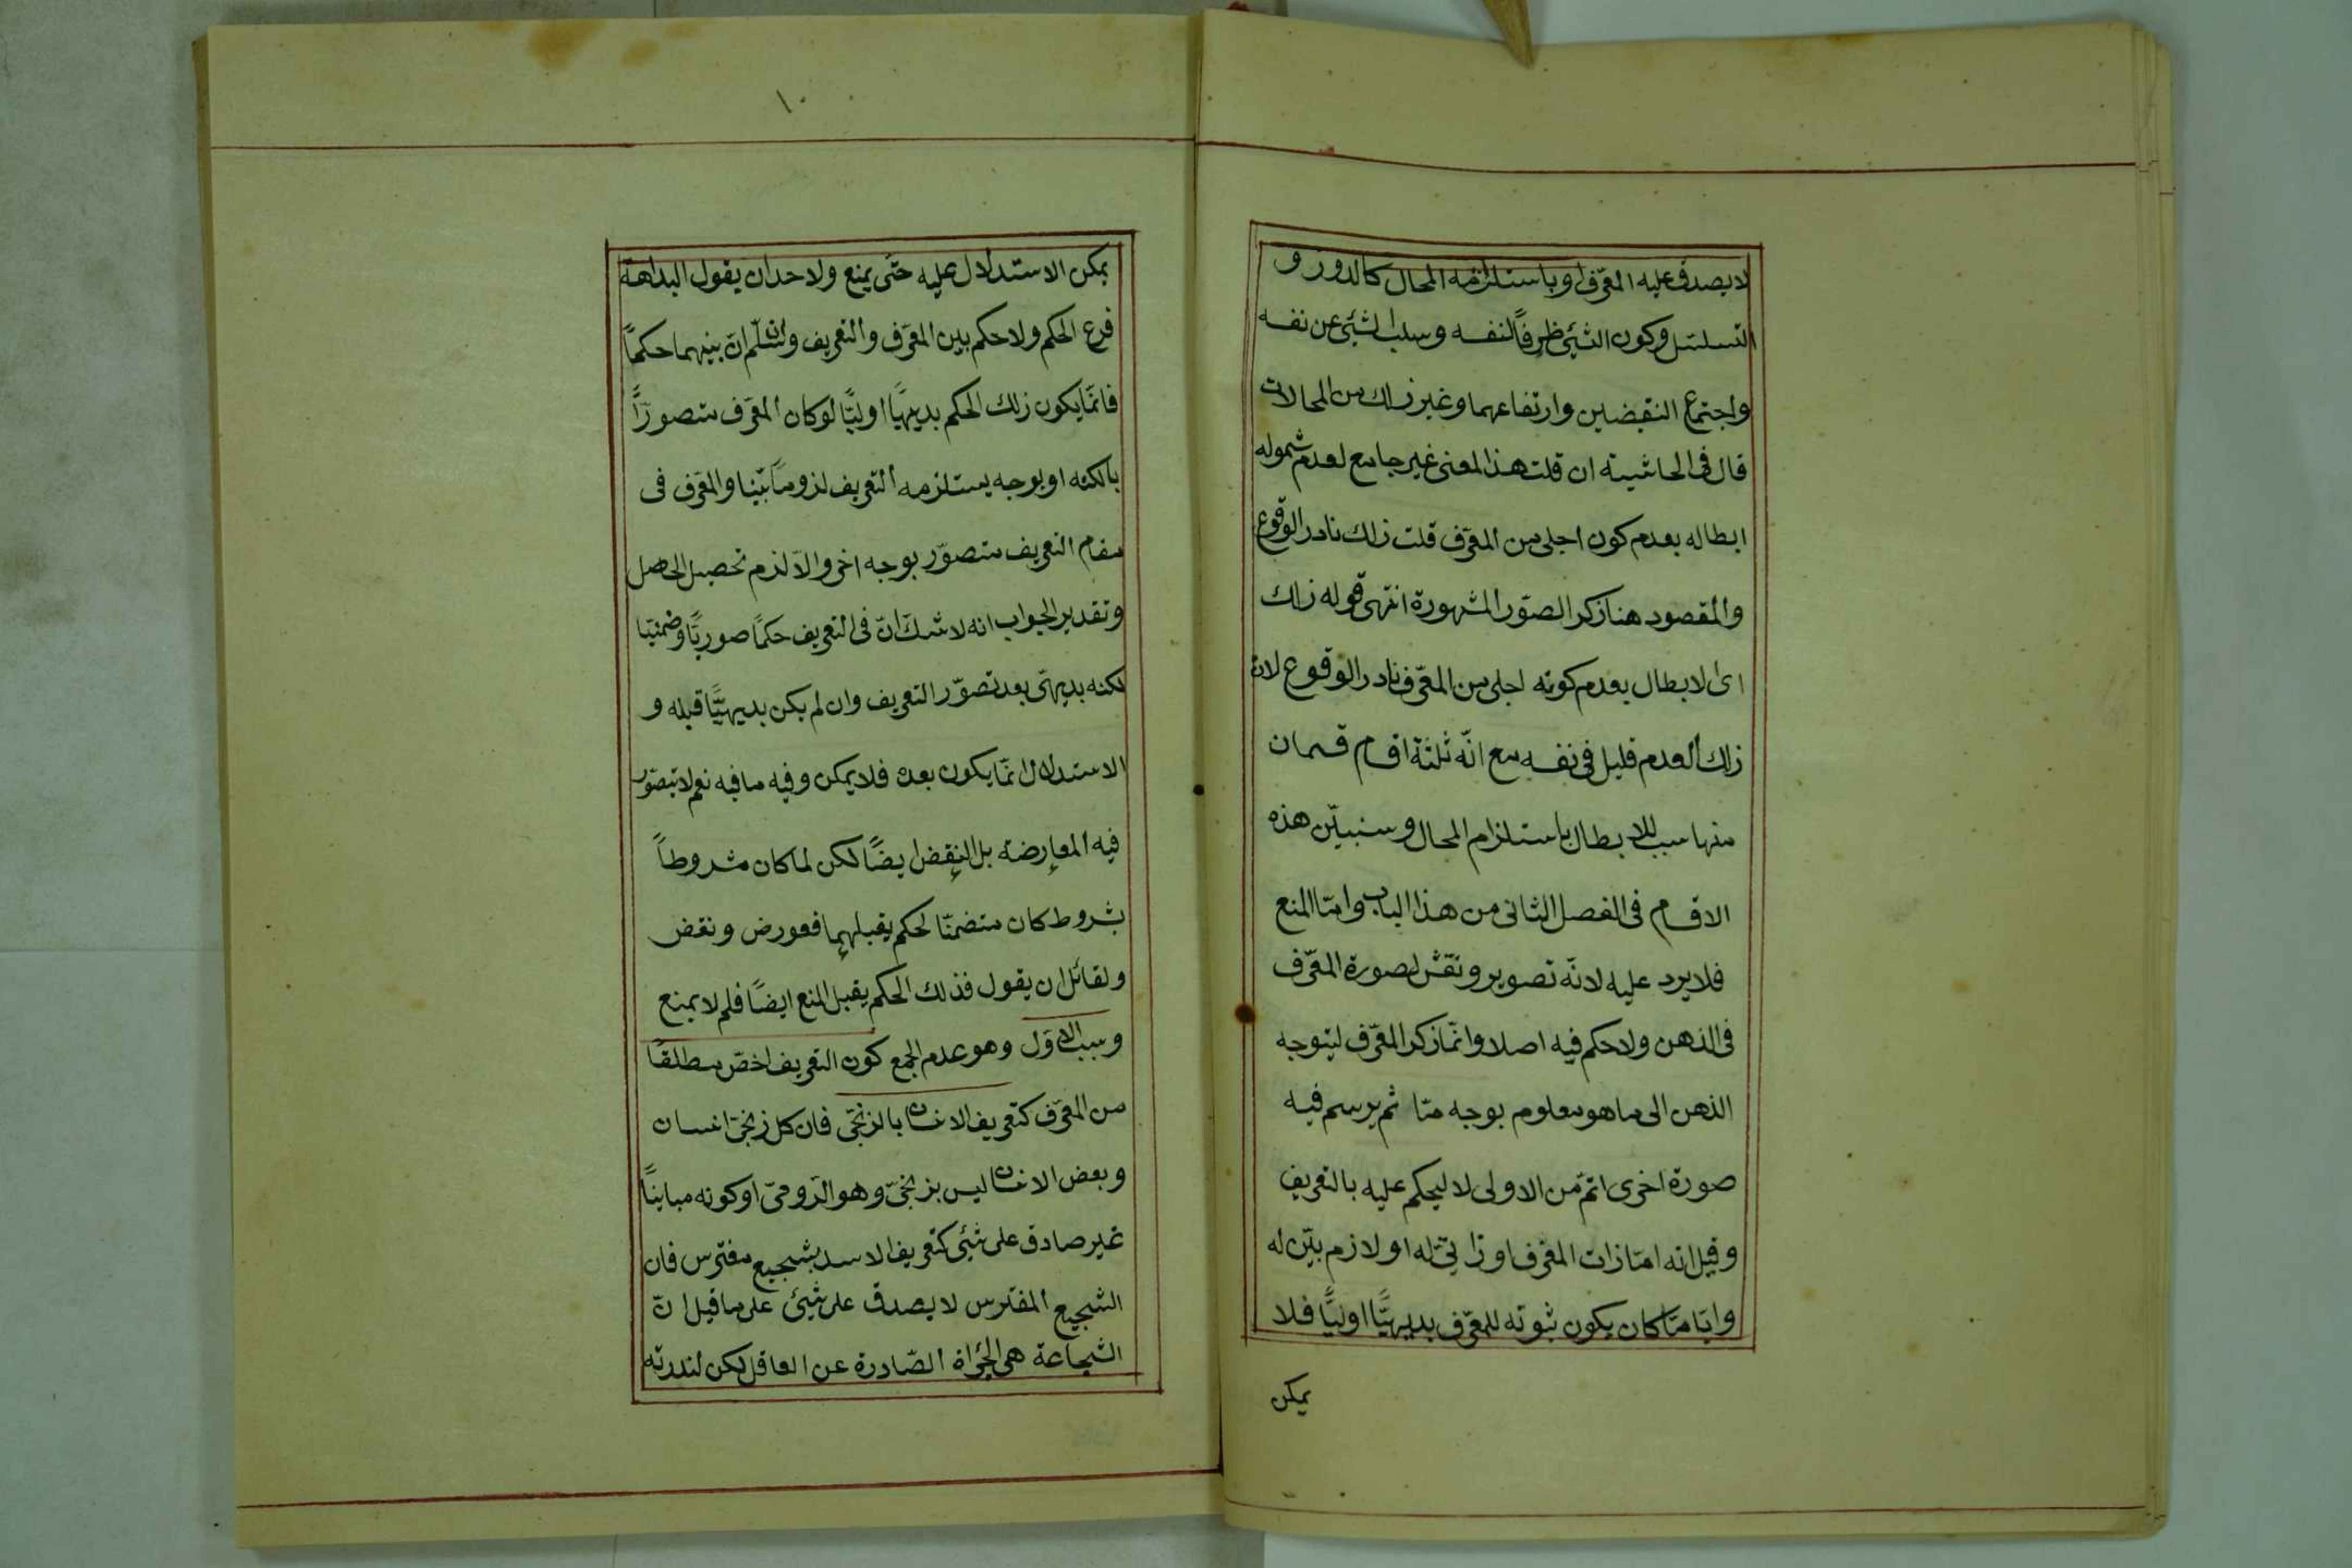 لا يصدق عليه المعرّف او باستلزامه المحال كالدور و
التسلسل وكون الشئ ظرفًا لنفسه وسلب الشئ عن نفسه
واجتماع النقيضين وارتفاعهما وغير ذلك من المحالات
قال فى الحاشيته ان قلت هذا المعنى غير جامع لعدم شموله
ابطاله بعدم كون اجلى من المعرّف قلت ذلك نادر الوقوع
والمقصود هنا ذكر الصّور المشهورة انتهى قوله ذلك
اى الابطال بعدم كونه اجلى من المعرّف نادر الوقوع لان
ذلك العدم قليل فى نفسه مع انّه ثلثة اقسام قسمان
منها سبب للابطال باستلزام المحال وسنبيّن هذه
الاقسام فى الفصل الثانى من هذا الباب وامّا المنع
فلا يرد عليه لانّه تصوير ونقش لصورة المعرّف
فى الذهن ولا حكم فيه اصلا وانّما ذكر المعرّف ليتوجه
الذهن الى ما هو معلوم بوجه مّا ثم يرسم فيه
صورة اخرى اتمّ من الاولى لا ليحكم عليه بالتعريف
وقيل انه امّا ذات المعرّف او ذاتىّ له او لازم بيّن له
وايّا مّا كان يكون ثبوته للمعرّف بديهيًّا اوليًّا فلا
يمكن
١٠
يمكن الاستدلال عليه حتّى يمنع ولاحد ان يقول البداهة
فرع الحكم ولا حكم بين المعرّف والتعريف وان سلّم انّ بينهما حكمًا
فانّما يكون ذلك الحكم بديهيًّا اوليًّا لو كان المعرّف متصورًا
بالكنه او بوجه يستلزمه التعريف لزومًا بيّنا والمعرّف فى
مقام التعريف متصوّر بوجه اخر والّا لزم تحصيل الحاصل
وتقدير الجواب انه لا شكّ انّ فى التعريف حكمًا صوريًّا وضمنيّا
لكنه بديهىّ بعد تصوّر التعريف وان لم يكن بديهيًّا قبله و
الاستدلال انّما يكون بعده فلا يمكن وفيه ما فيه نعم لا يتصوّر
فيه المعارضة بل النقض ايضًا لكن لما كان مشروطاً
بشروط كان متضمّنا لحكم يقبلهما فعورض ونقض
ولقائل ان يقول فذلك الحكم يقبل المنع ايضًا فلم لا يمنع
وسبب الاوّل وهو عدم الجمع كون التعريف اخصّ مطلقًا
من المعرّف كتعريف الانسان بالزنجىّ فان كل زنجىّ انسان
وبعض الانسان ليس بزنجىّ وهو الرّومىّ او كونه مباينًا
غير صادق على شئ كتعريف الاسد بشجيع مفترس فان
الشجيع المفترس لا يصدق على شئ على ما قيل انّ
الشجاعة هى الجرأة الصّادرة عن العاقل لكن لندرته